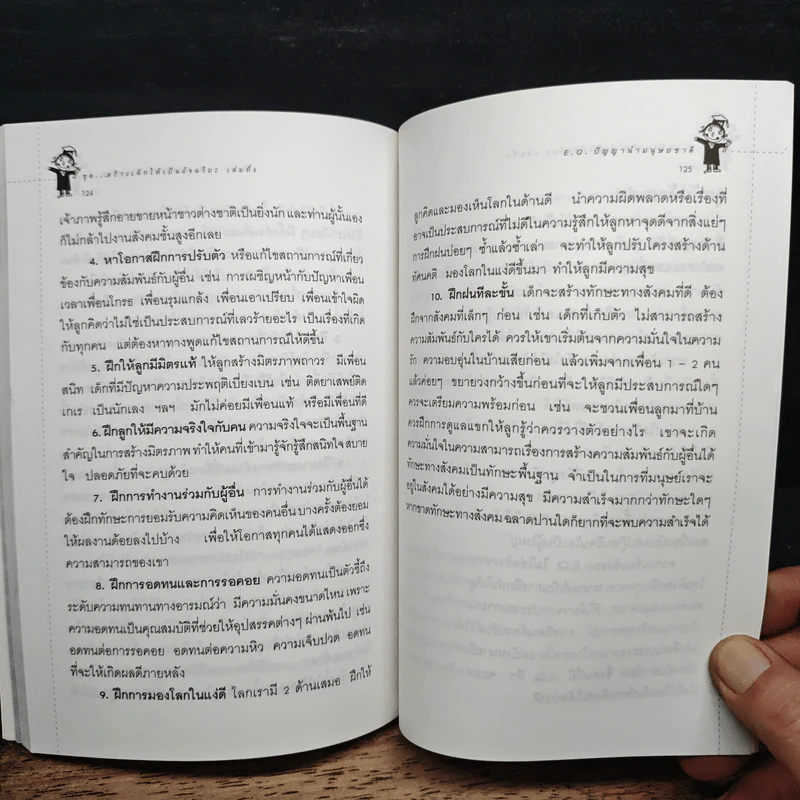 ชุด...สร้างเด็กให้เป็นอัจฉริยะ เล่มที่
124
เจ้าภาพรู้สึกอายขายหน้าชาวต่างชาติเป็นยิ่งนัก และท่านผู้นั้นเอง
ก็ไม่กล้าไปงานสังคมชั้นสูงอีกเลย
4. หาโอกาสฝึกการปรับตัว หรือแก้ไขสถานการณ์ที่เกี่ยว
ข้องกับความสัมพันธ์กับผู้อื่น เช่น การเผชิญหน้ากับปัญหาเพื่อน
เวลาเพื่อนโกรธ เพื่อนรุมแกล้ง เพื่อนเอาเปรียบ เพื่อนเข้าใจผิด
ให้ลูกคิดว่าไม่ใช่เป็นประสบการณ์ที่เลวร้ายอะไร เป็นเรื่องที่เกิด
กับทุกคน แต่ต้องหาทางพูดแก้ไขสถานการณ์ให้ดีขึ้น
5. ฝึกให้ลูกมีมิตรแท้ ให้ลูกสร้างมิตรภาพถาวร มีเพื่อน
สนิท เด็กที่มีปัญหาความประพฤติเบี่ยงเบน เช่น ติดยาเสพย์ติด
เกเร เป็นนักเลง ฯลฯ มักไม่ค่อยมีเพื่อนแท้ หรือมีเพื่อนที่ดี
6. ฝึกลูกให้มีความจริงใจกับคน ความจริงใจจะเป็นพื้นฐาน
สำคัญในการสร้างมิตรภาพ ทำให้คนที่เข้ามารู้จักรู้สึกสนิทใจ สบาย
ใจ ปลอดภัยที่จะคบด้วย
7. ฝึกการทำงานร่วมกับผู้อื่น การทำงานร่วมกับผู้อื่นได้
ต้องฝึกทักษะการยอมรับความคิดเห็นของคนอื่น บางครั้งต้องยอม
ให้ผลงานด้อยลงไปบ้าง เพื่อให้โอกาสทุกคนได้แสดงออกซึ่ง
ความสามารถของเขา
8. ฝึกการอดทนและการรอคอย ความอดทนเป็นตัวชี้ถึง
ระดับความทนทานทางอารมณ์ว่า มีความมั่นคงขนาดไหน เพราะ
ความอดทนเป็นคุณสมบัติที่ช่วยให้อุปสรรคต่างๆ ผ่านพ้นไป เช่น
อดทนต่อการรอคอย อดทนต่อความหิว ความเจ็บปวด อดทน
ที่จะให้เกิดผลดีภายหลัง
9. ฝึกการมองโลกในแง่ดี โลกเรามี 2 ด้านเสมอ ฝึกให้
E.Q. ปัญญานำมนุษยชาติ
125
ลูกคิดและมองเห็นโลกในด้านดี นำความผิดพลาดหรือเรื่องที่
อาจเป็นประสบการณ์ที่ไม่ดีในความรู้สึกให้ลูกหาจุดดีจากสิ่งแย่ๆ
การฝึกฝนบ่อยๆ ซ้ำแล้วซ้ำเล่า จะทำให้ลูกปรับโครงสร้างด้าน
ทัศนคติ มองโลกในแง่ดีขึ้นมา ทำให้ลูกมีความสุข
10. ฝึกฝนทีละขั้น เด็กจะสร้างทักษะทางสังคมที่ดี ต้อง
ฝึกจากสังคมที่เล็กๆ ก่อน เช่น เด็กที่เก็บตัว ไม่สามารถสร้าง
ความสัมพันธ์กับใครได้ ควรให้เขาเริ่มต้นจากความมั่นใจในความ
รัก ความอบอุ่นในบ้านเสียก่อน แล้วเพิ่มจากเพื่อน 1 - 2 คน
แล้วค่อยๆ ขยายวงกว้างขึ้นก่อนที่จะให้ลูกมีประสบการณ์ใดๆ
ควรจะเตรียมความพร้อมก่อน เช่น จะชวนเพื่อนลูกมาที่บ้าน
ควรฝึกการดูแลแขกให้ลูกรู้ว่าควรวางตัวอย่างไร เขาจะเกิด
ความมั่นใจในความสามารถเรื่องการสร้างความสัมพันธ์กับผู้อื่นได้
ทักษะทางสังคมเป็นทักษะพื้นฐาน จำเป็นในการที่มนุษย์เราจะ
อยู่ในสังคมได้อย่างมีความสุข มีความสำเร็จมากกว่าทักษะใดๆ
หากขาดทักษะทางสังคม ฉลาดปานใดก็ยากที่จะพบความสำเร็จได้